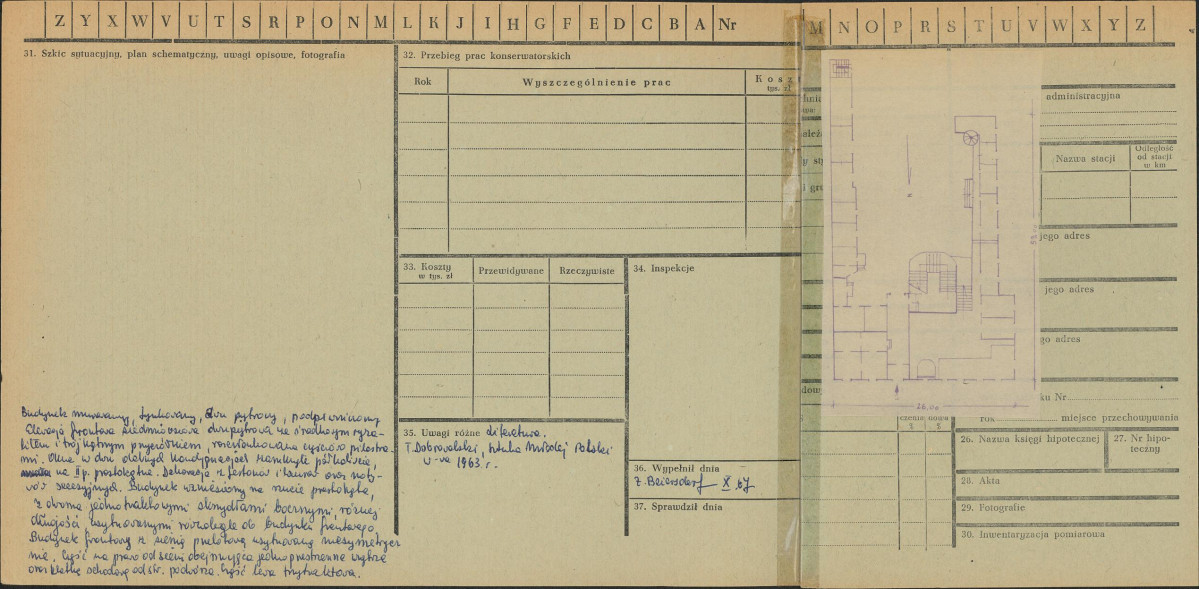 Z Y X W V U T S R P O N M L K J I H G F E D C B A Nr
M N O P R S T U V W X Y Z
31. Szkic sytuacyjny, plan schematyczny, uwagi opisowe, fotografia
Budynek murowany, tynkowany, dwu piętrowy, podpiwniczony
Elewacja frontowa siedmioosiowa dwupiętrowa ze środkowym ryza-
litem i trójkątnym przyczółkiem, rozczłonkowana częściowo pilastra-
mi. Okna w dwu dolnych kondygnacjach zamknięte półkoliście,
na II p. prostokątne. Dekoracja z festonów i oraz moty-
wów secesyjnych. Budynek wzniesiony na rzucie prostokąta,
z dwoma jednotraktowymi skrzydłami bocznymi, różnej
długości usytuowanymi równolegle do budynku frontowego.
Budynek frontowy z sienią przelotową usytuowaną niesymetrycz
nie. Część na prawo od sieni obejmująca jednoprzestrzenne wnętrze
oraz klatkę schodową od str. podwórza. Część lewa trzytraktowa.
32. Przebieg prac konserwatorskich
Rok
Wyszczególnienie prac
Koszt
tys. zł
33. Koszty
w tys. zł
Przewidywane
Rzeczywiste
34. Inspekcje
35. Uwagi różne literatura.
T. Dobrowolski, Sztuka Młodej Polski
W-wa 1963 r.
36. Wypełnił dnia
Z. Beiersdorf X. 67
37. Sprawdził dnia
administracyjna
Nazwa stacji
Odległość
od stacji
w km
jego adres
jego adres
go adres
ku Nr
rok miejsce przechowywania
26. Nazwa księgi hipotecznej
27. Nr hipo-
teczny
28. Akta
29. Fotografie
30. Inwentaryzacja pomiarowa